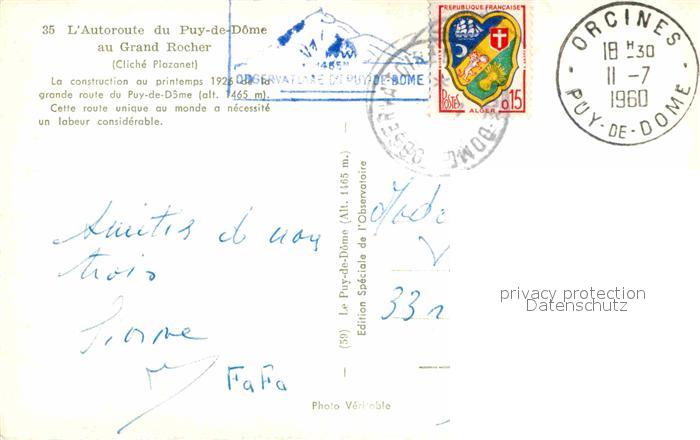 35 L'Autoroute du Puy-de-Dôme
au Grand Rocher
(Cliché Plazanet)
La construction au printemps 1926 de la
grande route du Puy-de-Dôme (alt. 1465 m).
Cette route unique au monde a nécessité
un labeur considérable.
OBSERVATOIRE DU PUY-DE-DOME
REPUBLIQUE FRANÇAISE
POSTES 0,15
ALGER
ORCINES
18 H 30
11-7
1960
PUY-DE-DOME
Amitiés de nous
trois
FaFa
(59) Le Puy-de-Dôme (Alt. 1465 m.)
Edition Spéciale de l'Observatoire
33
privacy protection
Datenschutz
Photo Véritable